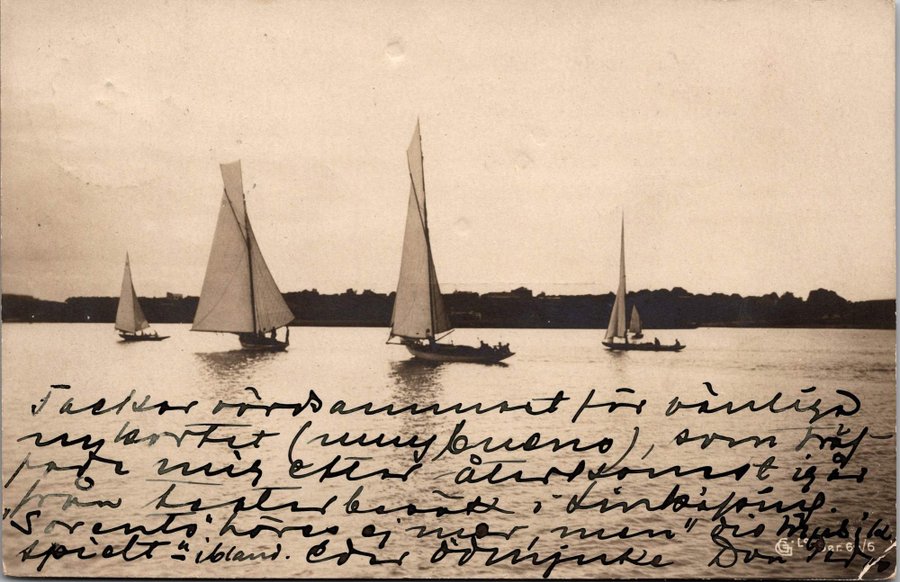 Tackar vördsammast för vänliga
nykortet (muy bueno), som träf
fade mig efter återkomst igår
från teaterbesök i Linköping.
"Sorento" höres ej mer, men "die Musik
spielt" ibland. Eder ödmjuke Don